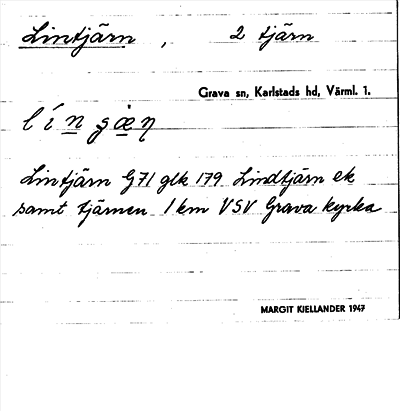 Lintjärn, 2 tjärn
Grava sn, Karlstads hd, Värml. l.
Lintjärn G71 glk 179 Lindtjärn ek
samt tjärnen 1 km VSV Grava kyrka
MARGIT KIELLANDER 1947